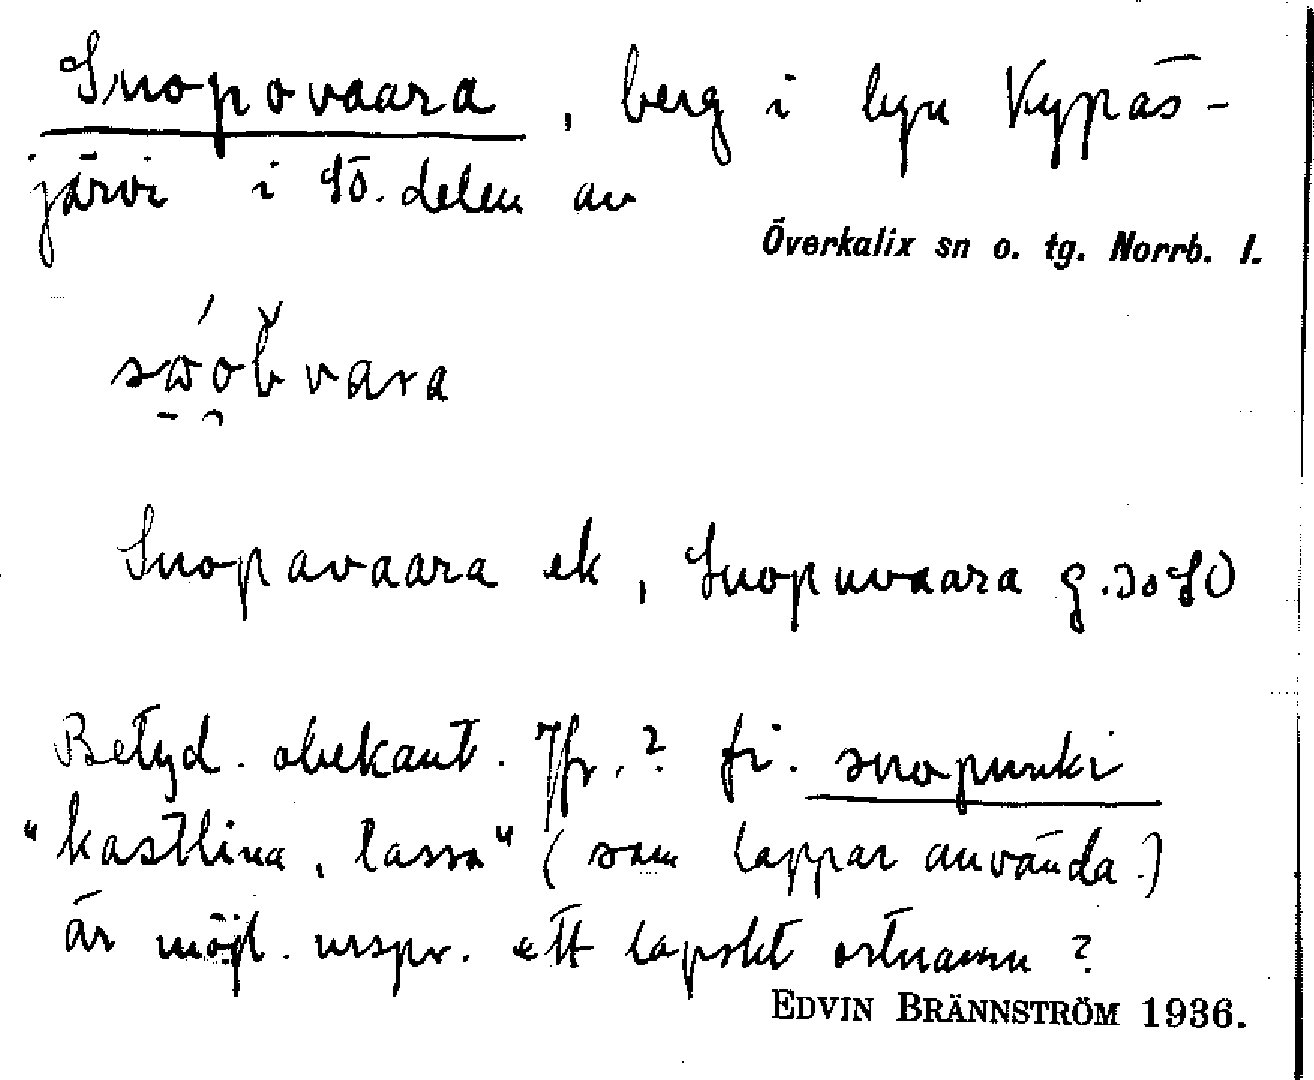 Suopovaara, berg i byn Kypäs-
järvi i SÖ. delen av
Överkalix sn o. tg. Norrb. l.
Suopavaara ek, Suopuvaara g.JoSO
Betyd. obekant. Jfr.? fi. suopunki
"kastlina, lasso" (som lappar använda.)
är möjl. urspr. ett lapskt ortnamn?
EDVIN BRÄNNSTRÖM 1936.